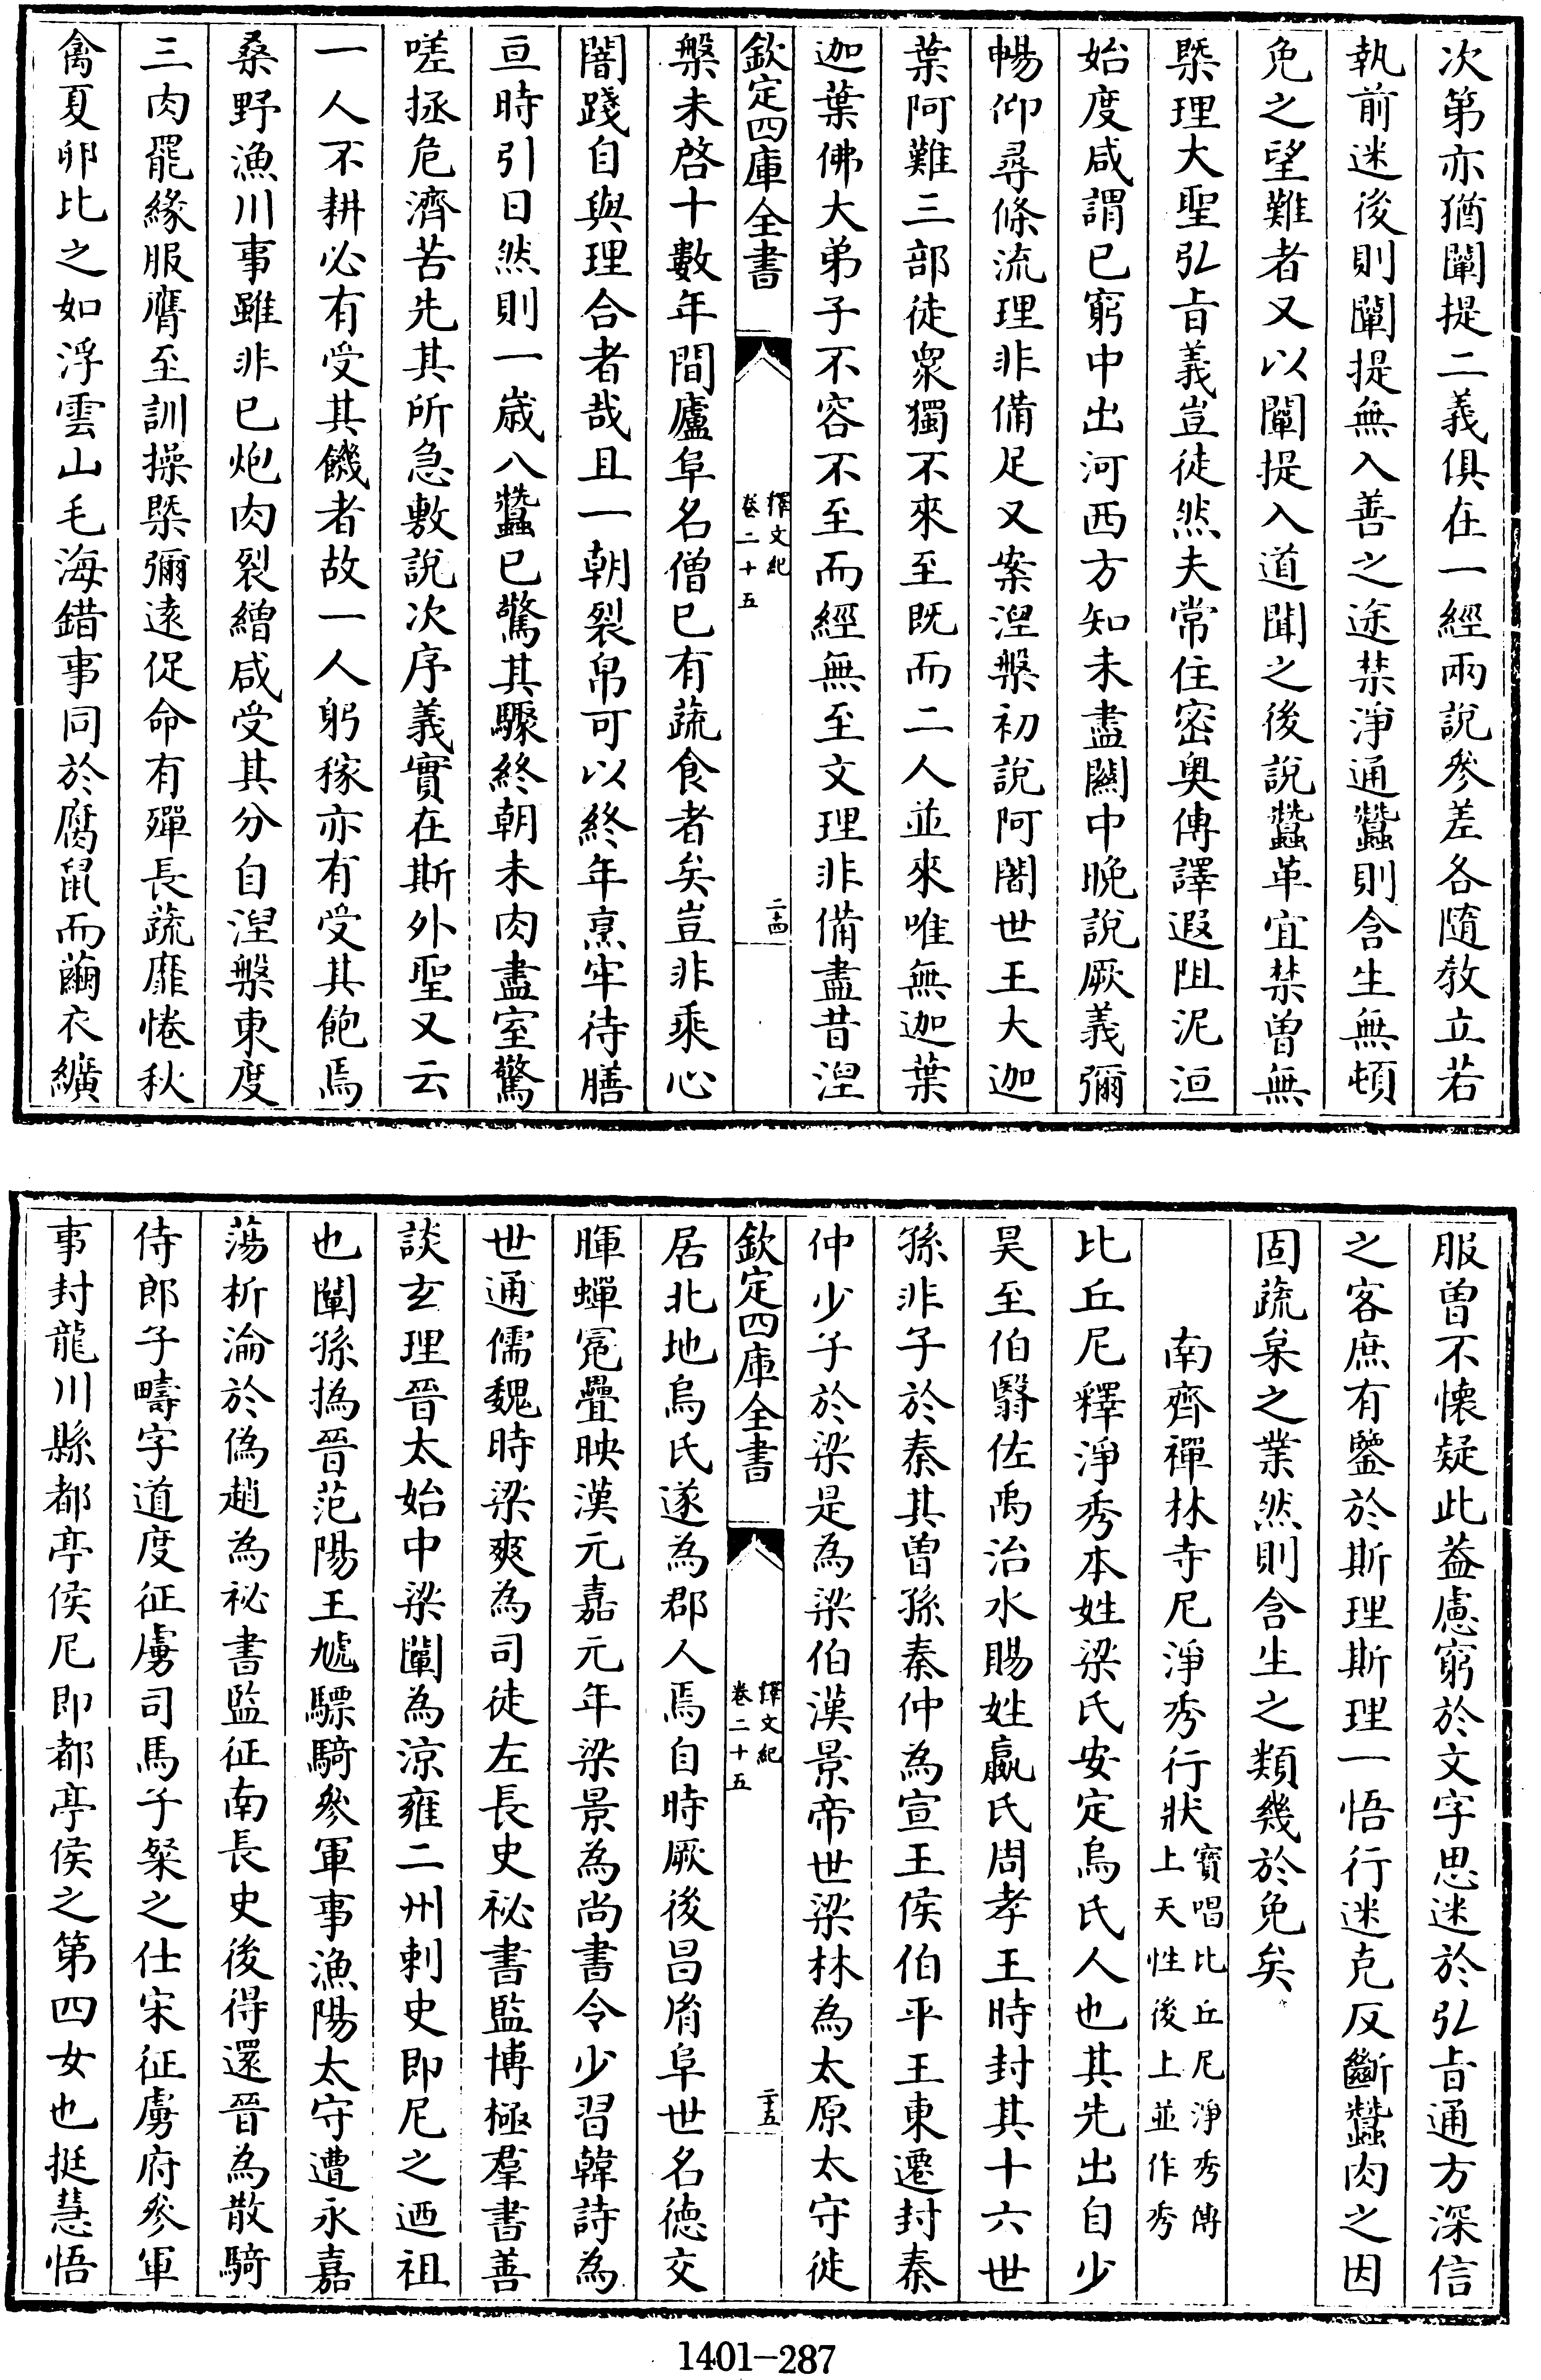 次第亦猶闡提二義俱在一經兩說參差各隨教立若
執前迷後則闡提無入善之途禁淨通蠶則含生無頓
免之望難者又以闡提入道聞之後說蠶革宜禁曽無
槩理大聖弘㫖義豈徒然夫常住密奥傳譯遐阻泥洹
始度咸謂已窮中出河西方知未盡闗中晚說厥義彌
暢仰尋條流理非備足又案湼槃初說阿闍世王大迦
葉阿難三部徒衆獨不來至既而二人並來唯無迦葉
迦葉佛大弟子不容不至而經無至文理非備盡昔湼
欽定四庫全書
釋文紀
卷二十五
二十四
槃未啓十數年間廬阜名僧已有蔬食者矣豈非乘心
闇踐自與理合者哉且一朝裂帛可以終年烹牢待膳
亘時引日然則一嵗八蠶已驚其驟終朝未肉盡室驚
嗟拯危濟苦先其所急敷說次序義實在斯外聖又云
一人不耕必有受其饑者故一人躬稼亦有受其飽焉
桑野漁川事雖非已炮肉裂繒咸受其分自湼槃東度
三肉罷緣服膺至訓操槩彌逺促命有殫長蔬靡惓秋
禽夏卵比之如浮雲山毛海錯事同於腐鼠而繭衣纊
服曽不懐疑此葢慮窮於文字思迷於弘㫖通方深信
之客庶有鑒於斯理斯理一悟行迷克反斷蠶肉之因
固蔬枲之業然則含生之類幾於免矣
南齊禪林寺尼淨秀行狀
寶唱比丘尼淨秀傳
上天性後上並作秀
比丘尼釋淨秀本姓梁氏安定烏氏人也其先出自少
昊至伯翳佐禹治水賜姓嬴氏周孝王時封其十六世
孫非子於秦其曽孫秦仲為宣王侯伯平王東遷封秦
仲少子於梁是為梁伯漢景帝世梁林為太原太守徙
欽定四庫全書
釋文紀
卷二十五
二十五
居北地烏氏遂為郡人焉自時厥後昌㣧阜世名德交
暉蟬冕疊映漢元嘉元年梁景為尚書令少習韓詩為
世通儒魏時梁爽為司徒左長史祕書監博極羣書善
談玄理晉太始中梁闡為涼雍二州剌史即尼之迺祖
也闡孫撝晉范陽王虓驃騎參軍事漁陽太守遭永嘉
蕩析淪於偽趙為祕書監征南長史後得還晉為散騎
侍郎子疇字道度征虜司馬子粲之仕宋征虜府參軍
事封龍川縣都亭侯尼即都亭侯之第四女也挺慧悟
1401-287